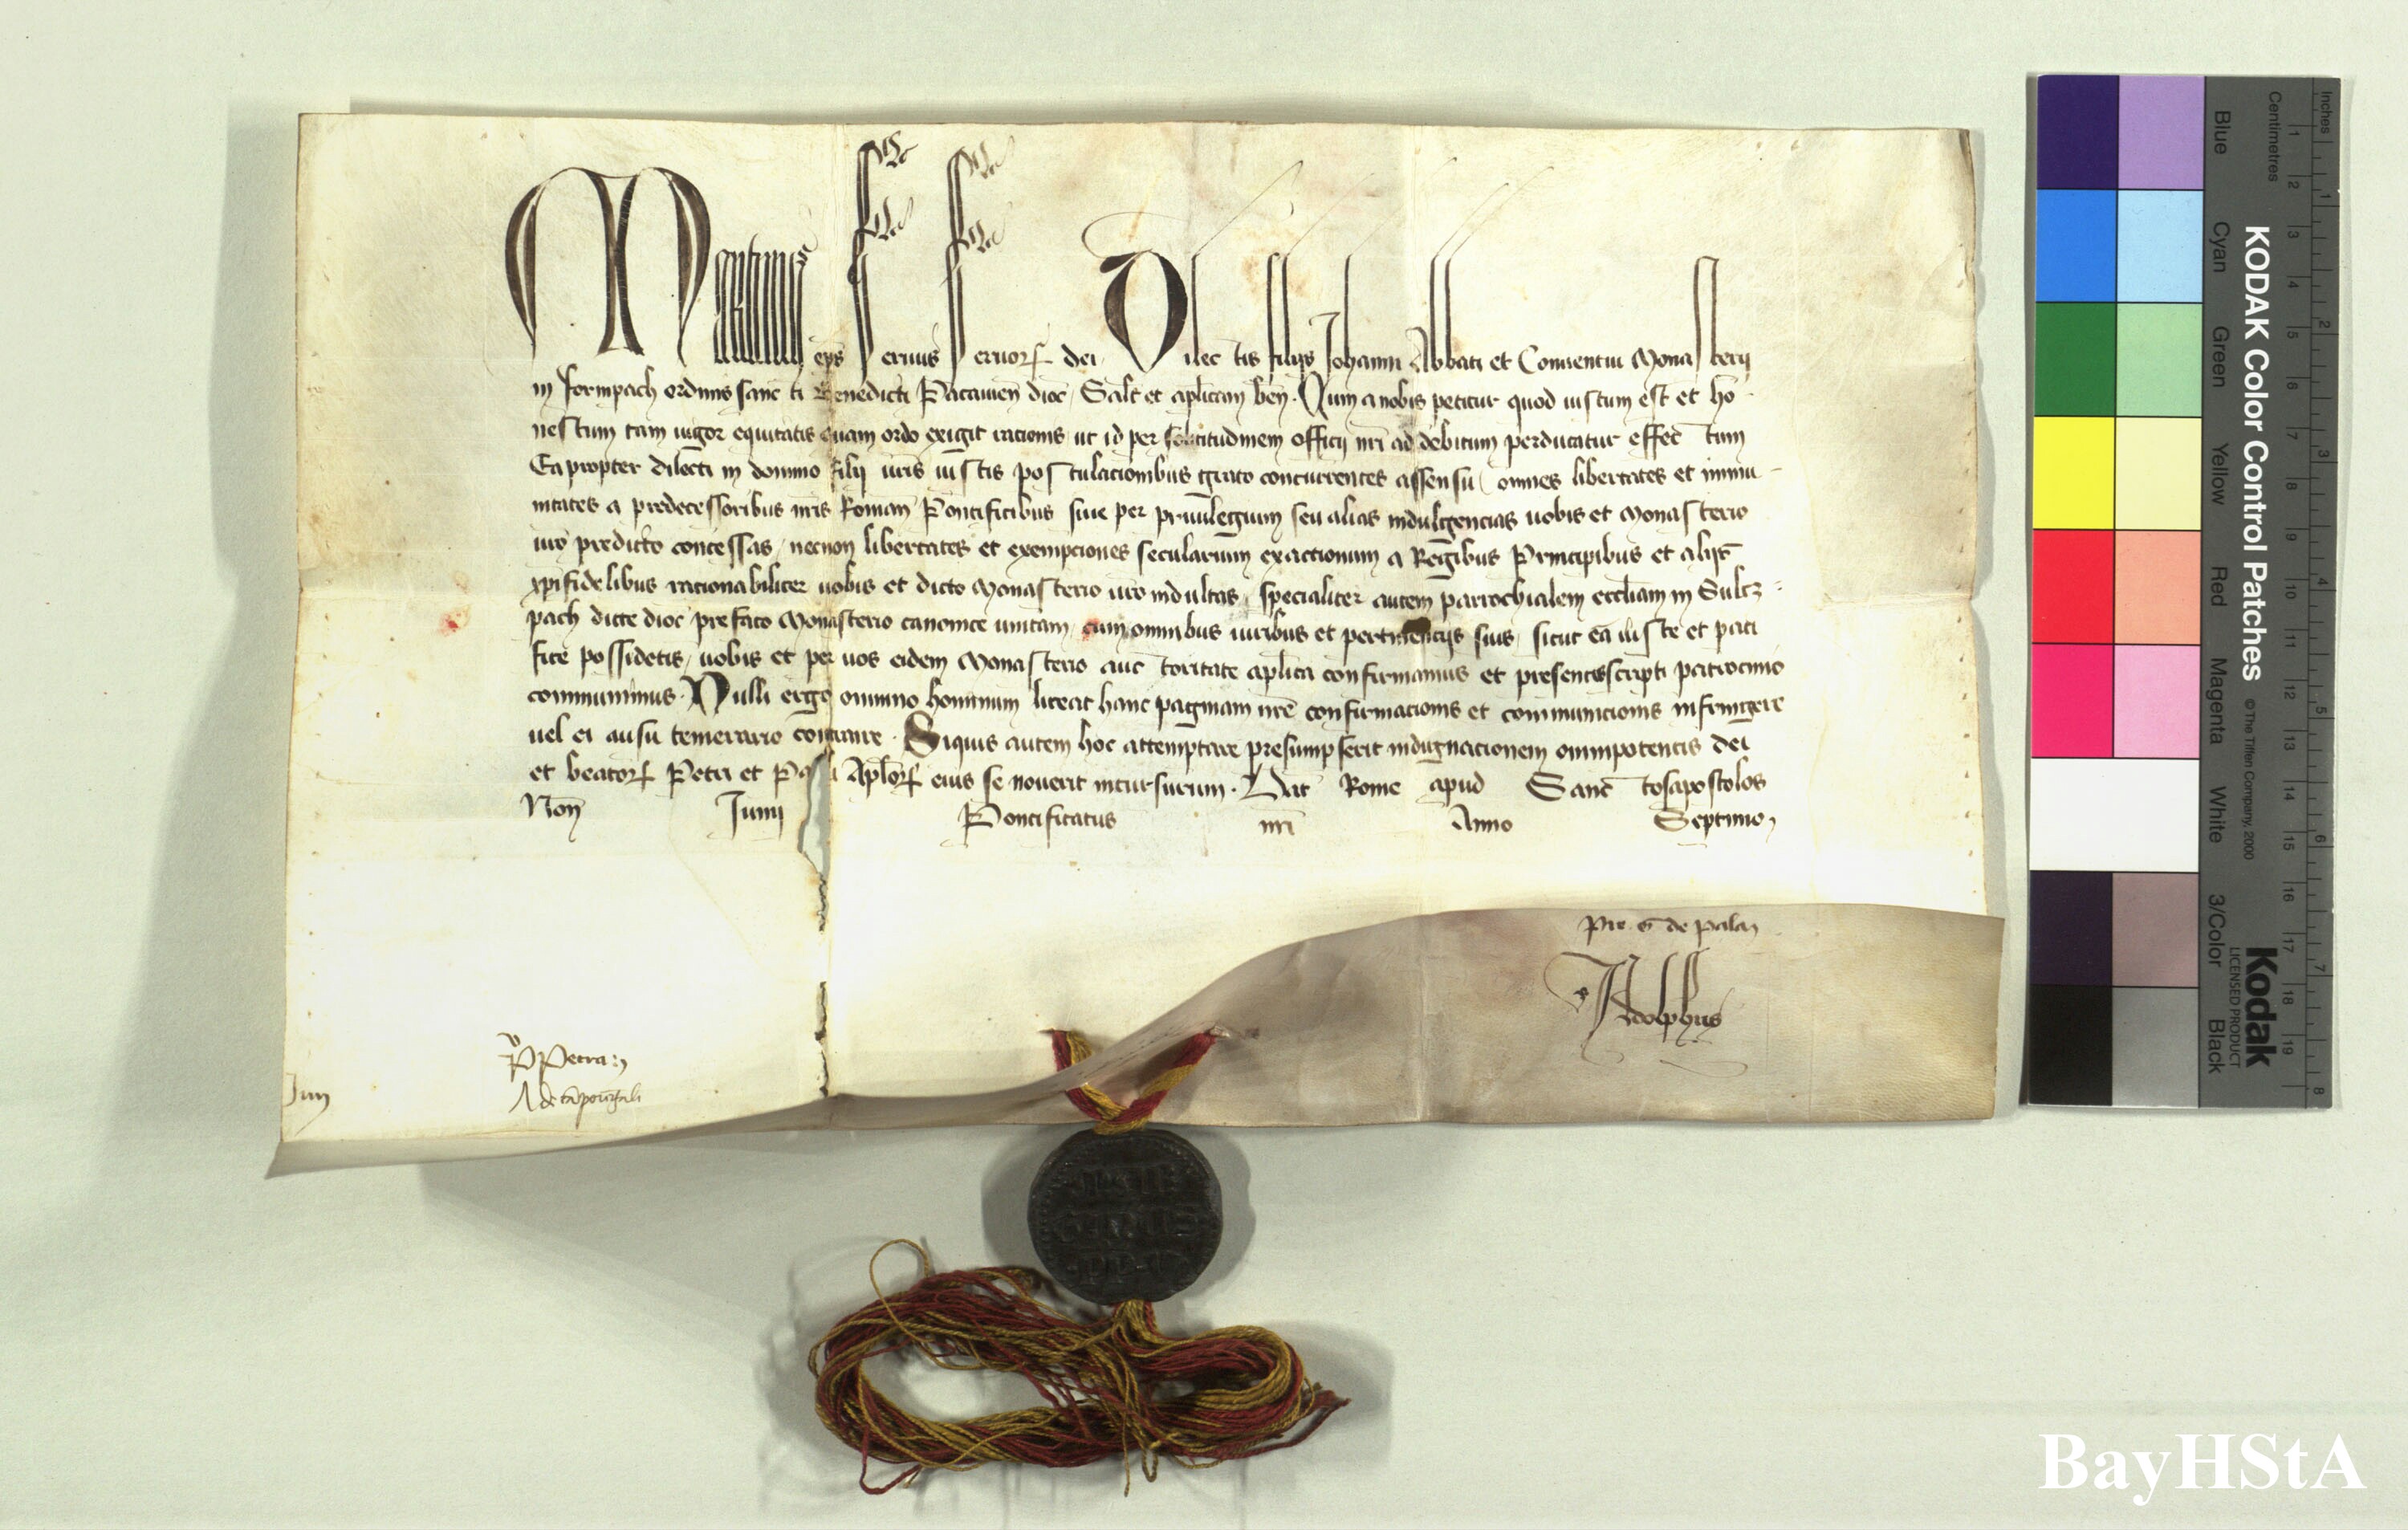 Martinus ep̄s seruus seruoꝝ dei Dilectis filijs Johanni Abbati et Conuentui Monasterij
in formpach ordinis sancti Benedicti Patauien̄ dioc̄ Salt̄ et ap̄licam ben̄. Cum a nobis petitur quod iustum est et ho-
nestum tam uigor equitatis quam ordo exigit racionis ut id per sollicitudinem officij nr̄i ad debitum perducatur effectum
Eapropter dilecti in domino filij ur̄is iustis postulacionibus grato concurrentes assensu omnes libertates et immu-
nitates a predecessoribus nr̄is Roman̄ Pontificibus siue per priuilegium seu alias indulgencias uobis et Monasterio
ur̄o predicto concessas necnon libertates et exempciones secularium exactionum a Regibus Principibus et alijs
xp̄ifidelibus racionabiliter uobis et dicto Monasterio ur̄o indultas specialiter autem parrochialem eccl̄iam in Sultz-
pach dicte dioc̄ prefato Monasterio canonice unitam cum omnibus iuribus et pertinencijs suis sicut ea iuste et paci
fice possidetis uobis et per uos eidem Monasterio auctoritate ap̄lica confirmamus et presentis scripti patrocinio
communimus. Nulli ergo omnino hominum liceat hanc paginam nr̄e confirmacionis et communicionis infringere
uel ei ausu temerario contraire. Siquis autem hoc attemptare presumpserit indignacionem omnipotentis dei
et beatoꝝ Petri et Pauli Ap̄loꝝ eius se nouerit incursurum. Dat̄ Rome apud Sanctosapostolos
Non̄ Junij Pontificatus nr̄i Anno Septimo
de Pala
Adolphus
P Petra
A de
Jun
KODAK Color Control Patches
© The Tiffen Company, 2000
Kodak
LICENSED PRODUCT
Inches 1 2 3 4 5 6 7 8
Centimetres 1 2 3 4 5 6 7 8 9 10 11 12 13 14 15 16 17 18 19
Blue Cyan Green Yellow Red Magenta White 3/Color Black
BayHStA